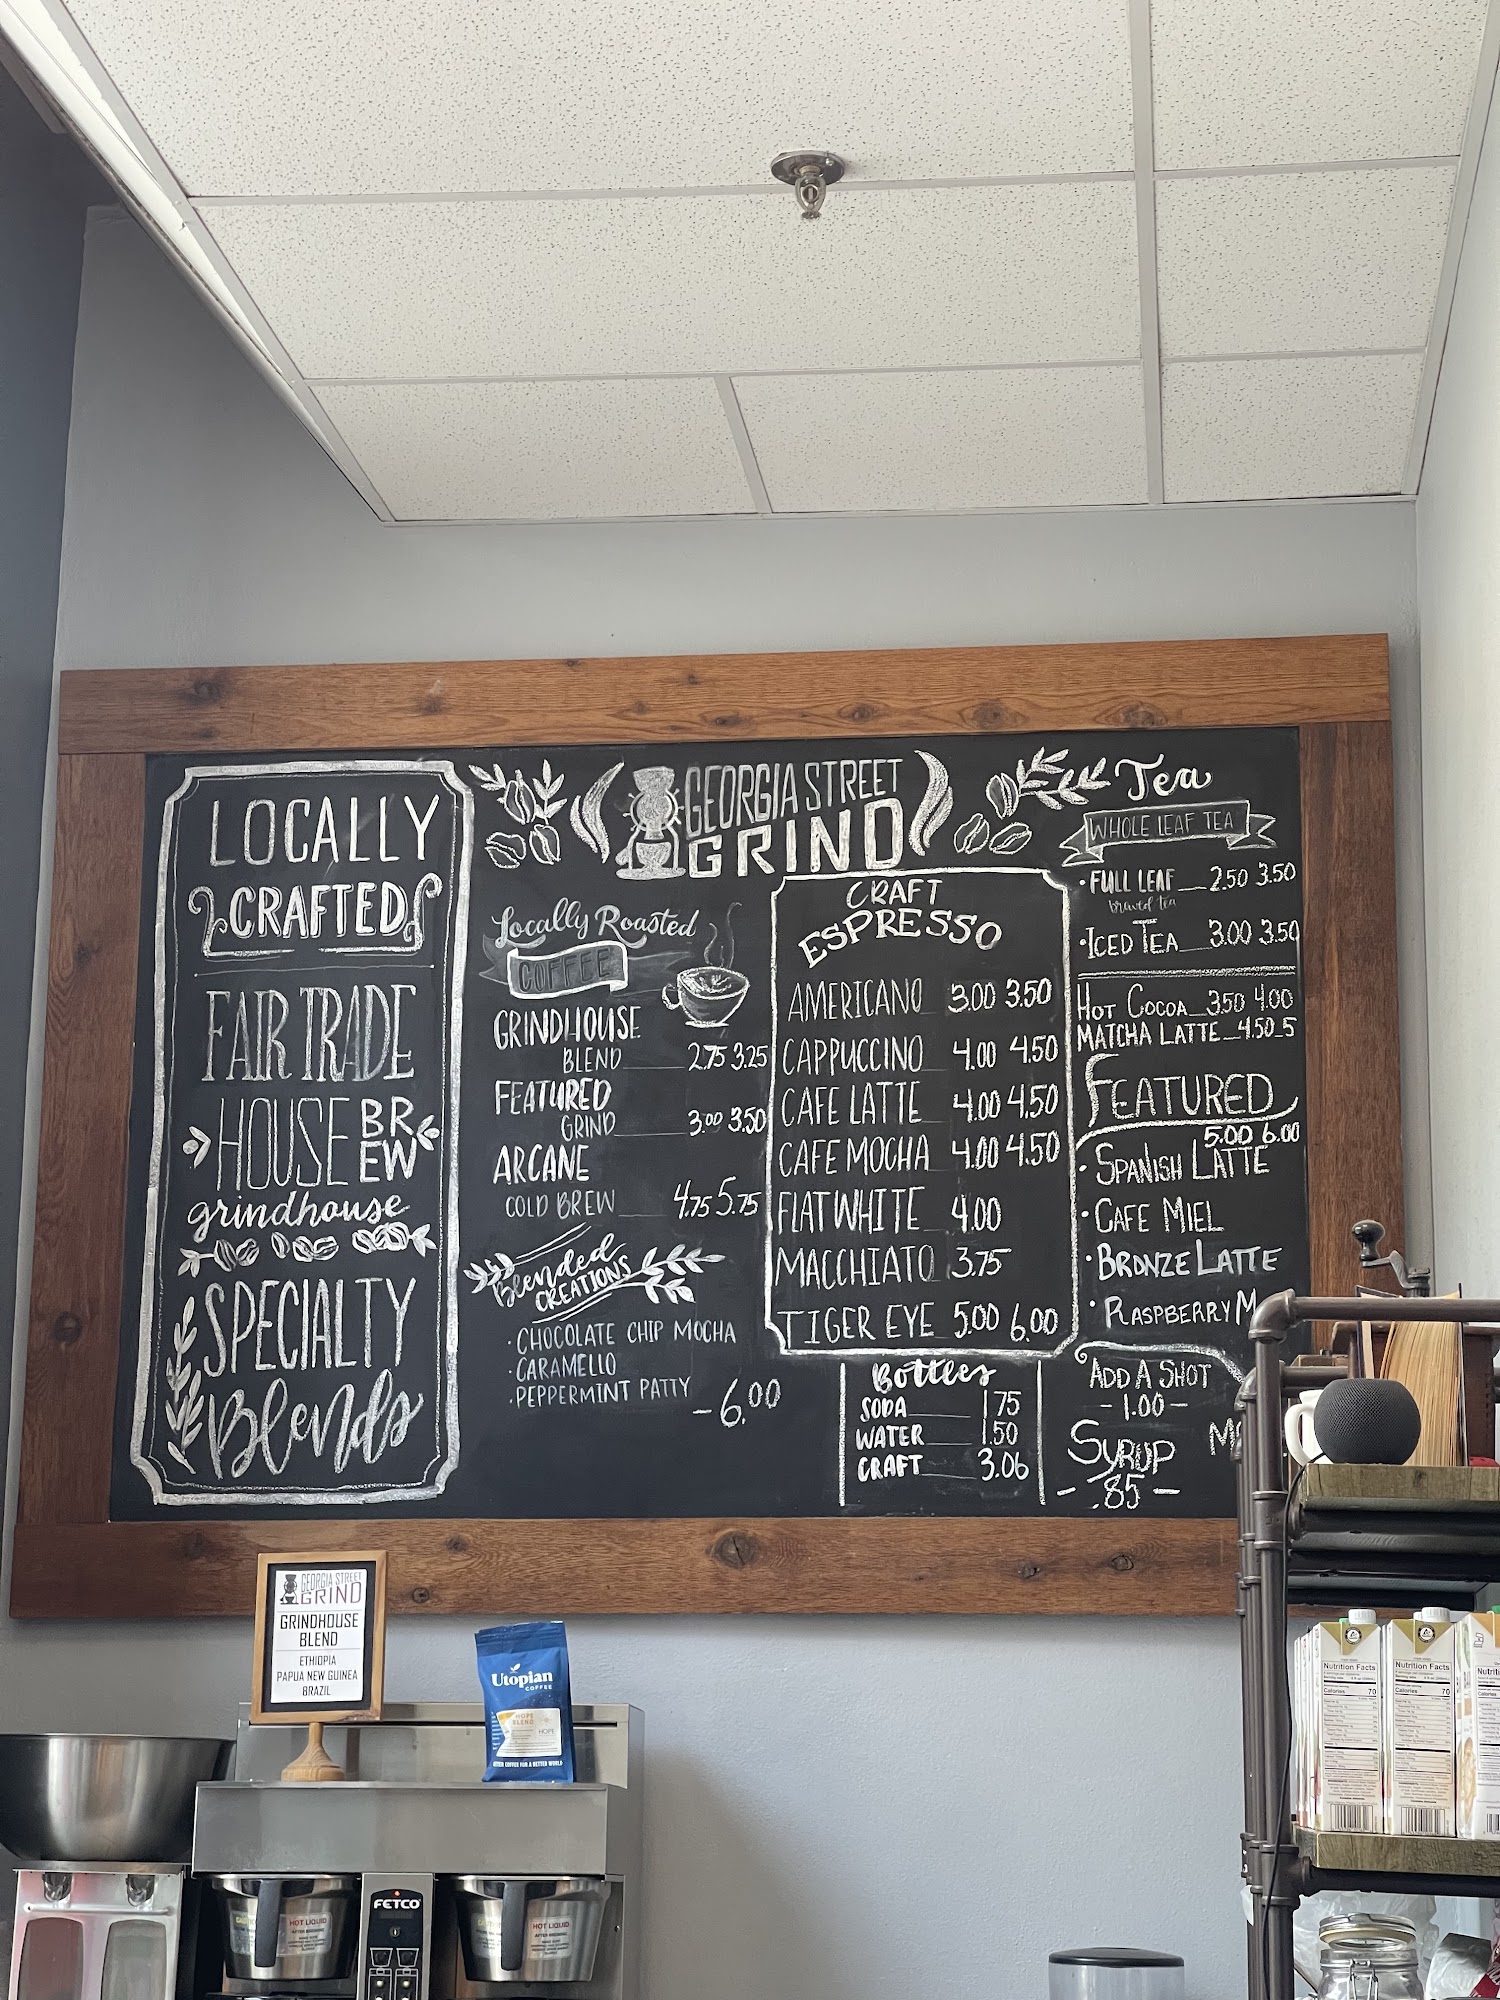 LOCALLY
CRAFTED
FAIR TRADE
HOUSE BREW
grindhouse
SPECIALTY
Blends
GEORGIA STREET
GRIND
Locally Roasted
COFFEE
GRINDHOUSE
BLEND 2.75 3.25
FEATURED
GRIND 3.00 3.50
ARCANE
COLD BREW 4.75 5.75
Blended
CREATIONS
· CHOCOLATE CHIP MOCHA
· CARAMELLO
· PEPPERMINT PATTY
- 6.00
CRAFT
ESPRESSO
AMERICANO 3.00 3.50
CAPPUCCINO 4.00 4.50
CAFE LATTE 4.00 4.50
CAFE MOCHA 4.00 4.50
FLAT WHITE 4.00
MACCHIATO 3.75
TIGER EYE 5.00 6.00
Bottles
SODA 1.75
WATER 1.50
CRAFT 3.06
Tea
WHOLE LEAF TEA
· FULL LEAF 2.50 3.50
brewed tea
· ICED TEA 3.00 3.50
HOT COCOA 3.50 4.00
MATCHA LATTE 4.50 5
FEATURED
5.00 6.00
· SPANISH LATTE
· CAFE MIEL
· BRONZE LATTE
· RASPBERRY M
ADD A SHOT
- 1.00 -
SYRUP
- .85 -
GEORGIA STREET
GRIND
GRINDHOUSE
BLEND
ETHIOPIA
PAPUA NEW GUINEA
BRAZIL
Utopian
COFFEE
HOPE
BLEND
HOPE
BETTER COFFEE FOR A BETTER WORLD
FETCO
HOT LIQUID
HOT LIQUID
Nutrition Facts
Calories 70
Nutrition Facts
Calories 70